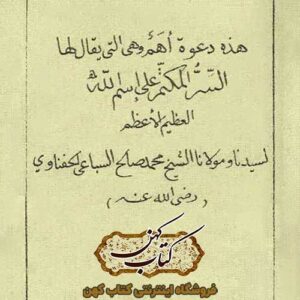 هذه دعوة أهم وهي التي يقال لها
السر المكتم على إسم الله
العظيم الأعظم
لسيدنا ومولانا الشيخ محمد صالح السباعي الحفناوي
(رضي الله عنه)
کتاب کهن
فروشگاه اینترنتی کتاب کهن